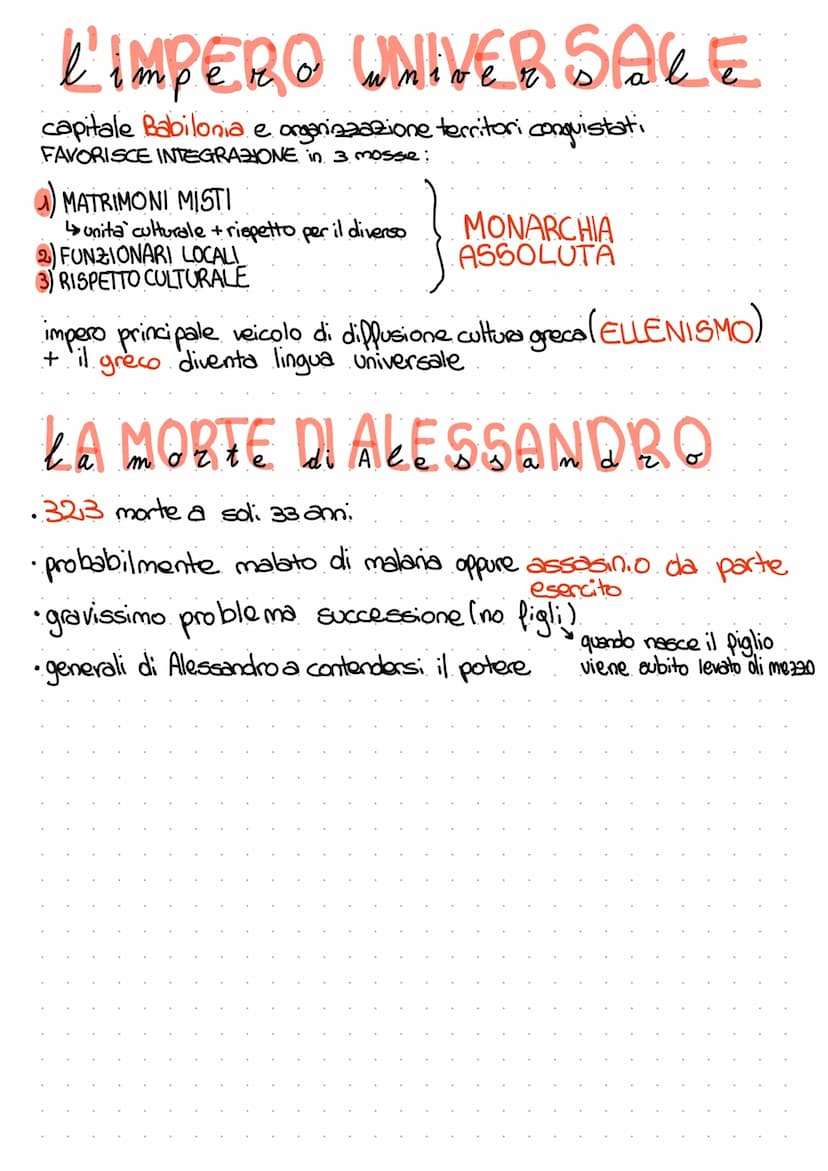 L'IMPERO UNIVERSALE
l'impero universale
capitale Babilonia e organizzazione territori conquistati
FAVORISCE INTEGRAZIONE in 3 mosse:
1) MATRIMONI MISTI
↳ unità culturale + rispetto per il diverso
2) FUNZIONARI LOCALI
3) RISPETTO CULTURALE
MONARCHIA
ASSOLUTA
impero principale veicolo di diffusione cultura greca (ELLENISMO)
+ il greco diventa lingua universale
LA MORTE DI ALESSANDRO
la morte di Alessandro
• 323 morte a soli 33 anni
• probabilmente malato di malaria oppure assasinio da parte
esercito
• gravissimo problema successione (no figli)
↘ quando nasce il figlio
viene subito levato di mezzo
• generali di Alessandro a contendersi il potere